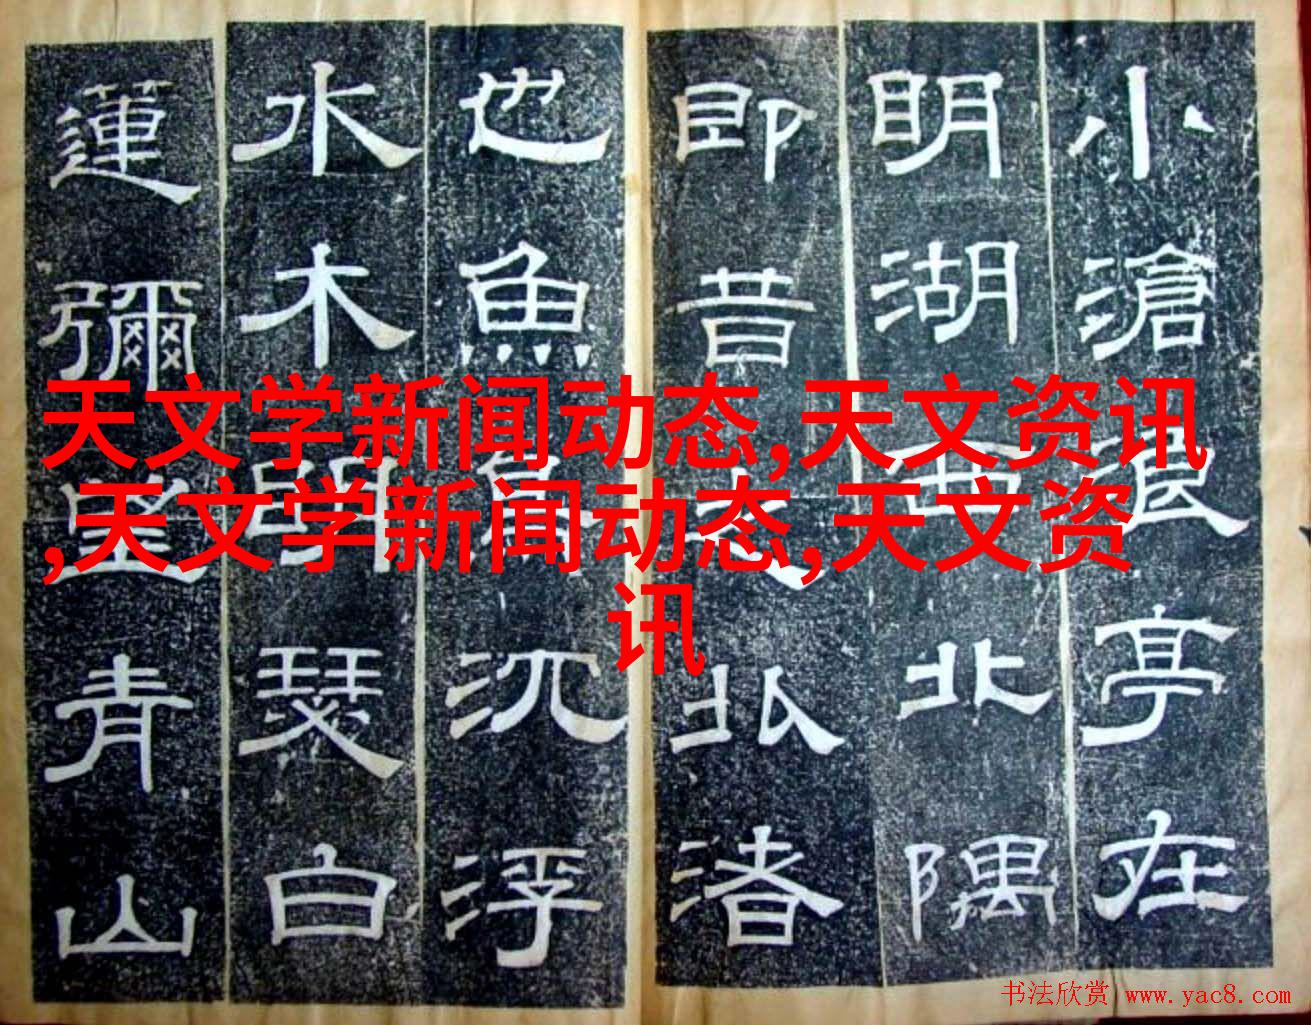 小滄浪亭在
明湖西北隅
即昔之北渚
也魚鳥沉浮
水木明瑟白
蓮彌望青山
天文学新闻动态,天文资讯
,天文学新闻动态,天文资
讯
书法欣赏 www.yac8.com